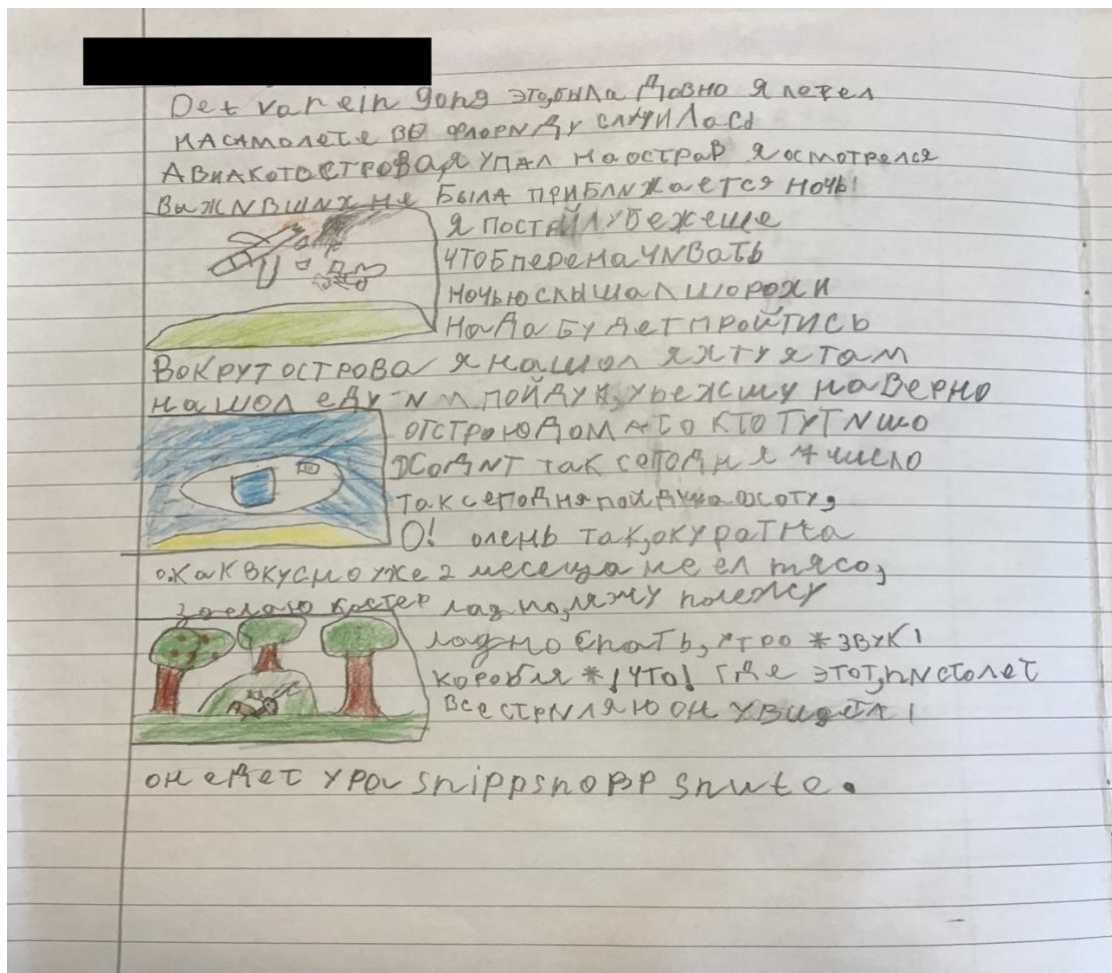 Det var ein gong это,была довно я летел
на самолете во флориду случилась
Авиакотострова,я упал на остров я осмотрелся
выживших не была приближается ночь!
я построил убежеще
чтоб перена чивать
ночью слышал шорохи
нада будет пройтись
вокруг острова я нашол яхту я там
нашол еду-и м пойду к,убежищу наверно
отстрою дом а то кто тут ишо
ходит так сегодня 4 число
так сегодня пойду на охоту,
О! олень так,окуратна
ох как вкусно уже 2 месеца не ел мясо,
зделаю костер ладно,ляжу полежу
ладно спать, утро *звук!
коробля *!что! где этот,пистолет
все стриляю он увидел!
он едет ура snippsnopp snute.